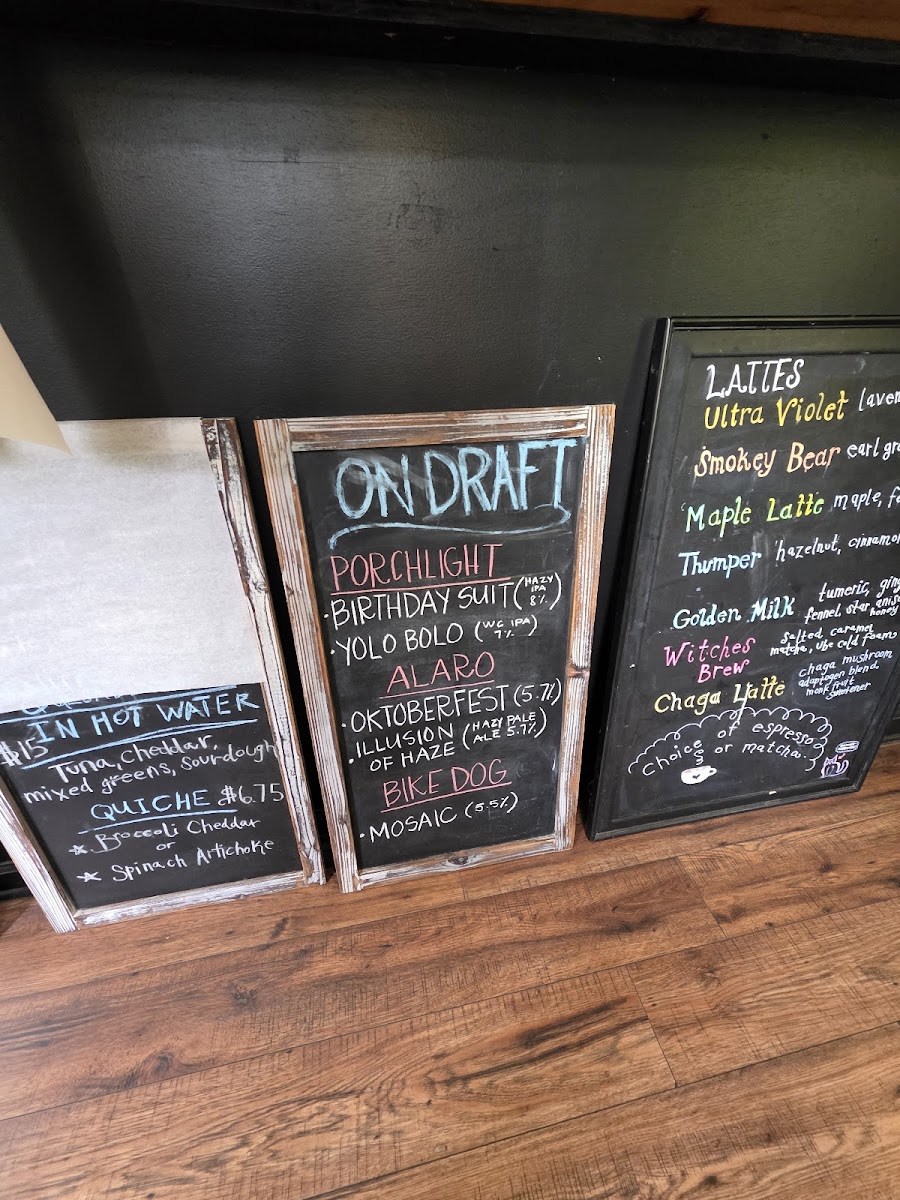 IN HOT WATER
$15
Tuna, Cheddar,
mixed greens, sourdough
QUICHE $6.75
Broccoli Cheddar
or
Spinach Artichoke
ON DRAFT
PORCHLIGHT
·BIRTHDAY SUIT (HAZY IPA 8%)
·YOLO BOLO (WC IPA 7%)
ALARO
·OKTOBERFEST (5.7%)
·ILLUSION (HAZY PALE
OF HAZE ALE 5.7%)
BIKE DOG
·MOSAIC (5.5%)
LATTES
Ultra Violet
Smokey Bear earl
Maple Latte maple,
Thumper hazelnut,
Golden Milk tumeric,
fennel, star anise
honey
Witches salted caramel
Brew matcha, ube cold foam
Chaga Latte chaga mushroom
adaptogen blend
monk fruit
sweetener
choice of espresso
or matcha